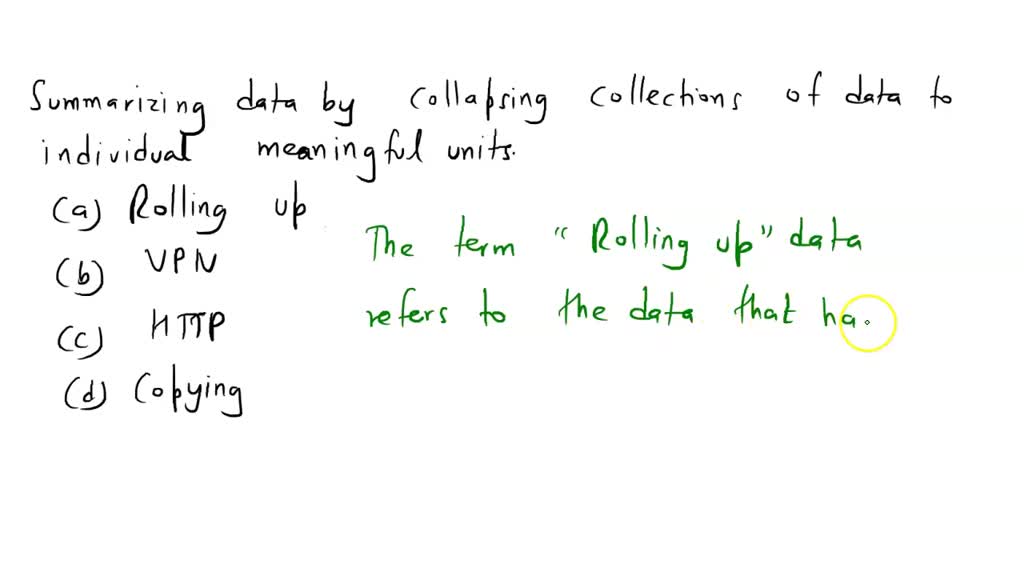 Summarizing data by collapsing collections of data to
individual meaningful units.
(a) Rolling up
(b) VPN
(c) HTTP
(d) Copying
The term "Rolling up" data
refers to the data that ha.